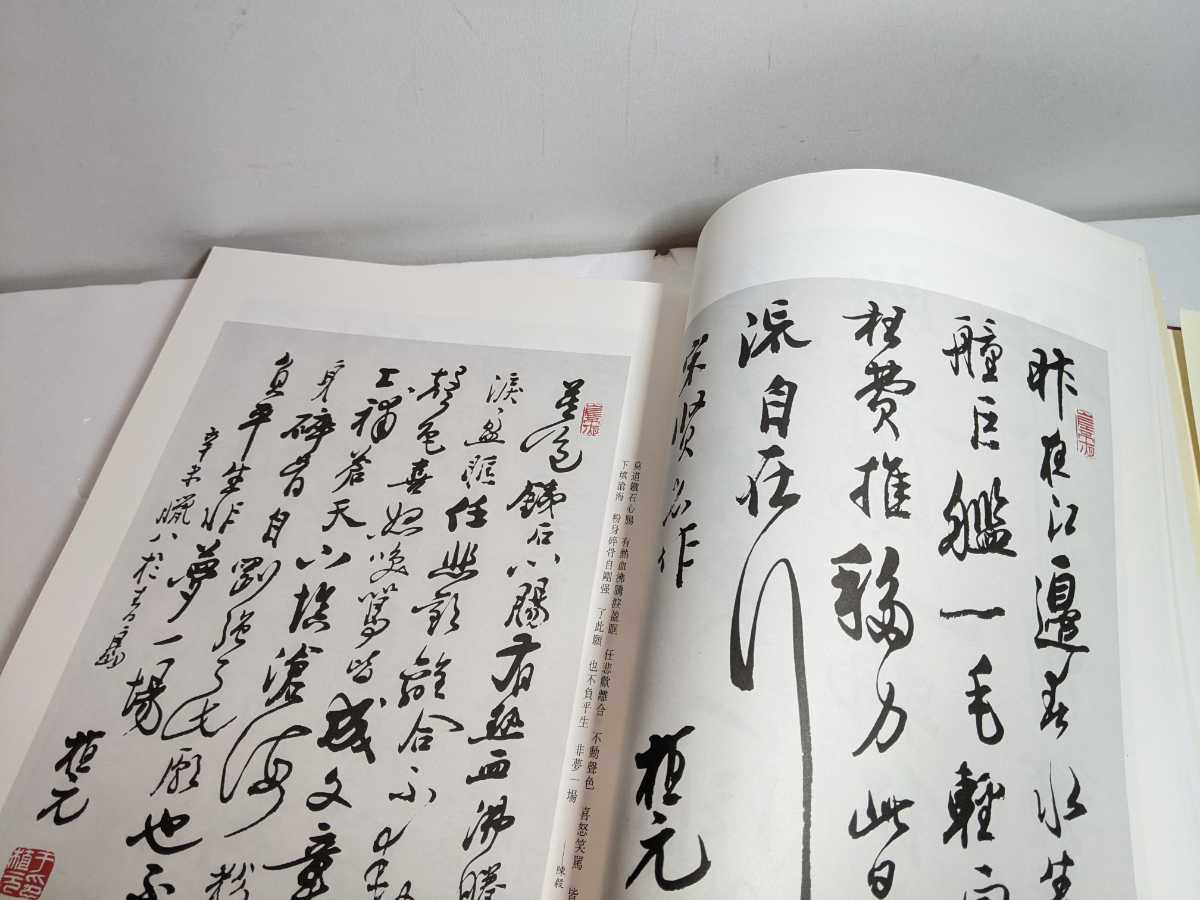 昨夜江邊春水生
艟巨艦一毛輕向
枉費推移力此日
流自在行
宋賢名作
植元
莫道鐵石心腸 有熱血沸騰淚盈眶 任悲歡離合 不動聲色 喜怒笑罵 皆
下填滄海 粉身碎骨自剛强 了此願 也不負平生 非夢一場 ——陳毅
莫道鐵石心腸有熱血沸騰
淚盈眶任悲歡離合不動
聲色喜怒笑罵皆成文章
上補蒼天下填滄海粉
身碎骨自剛强了此願也不
負平生非夢一場
辛未臘八於青島
植元
于印植元